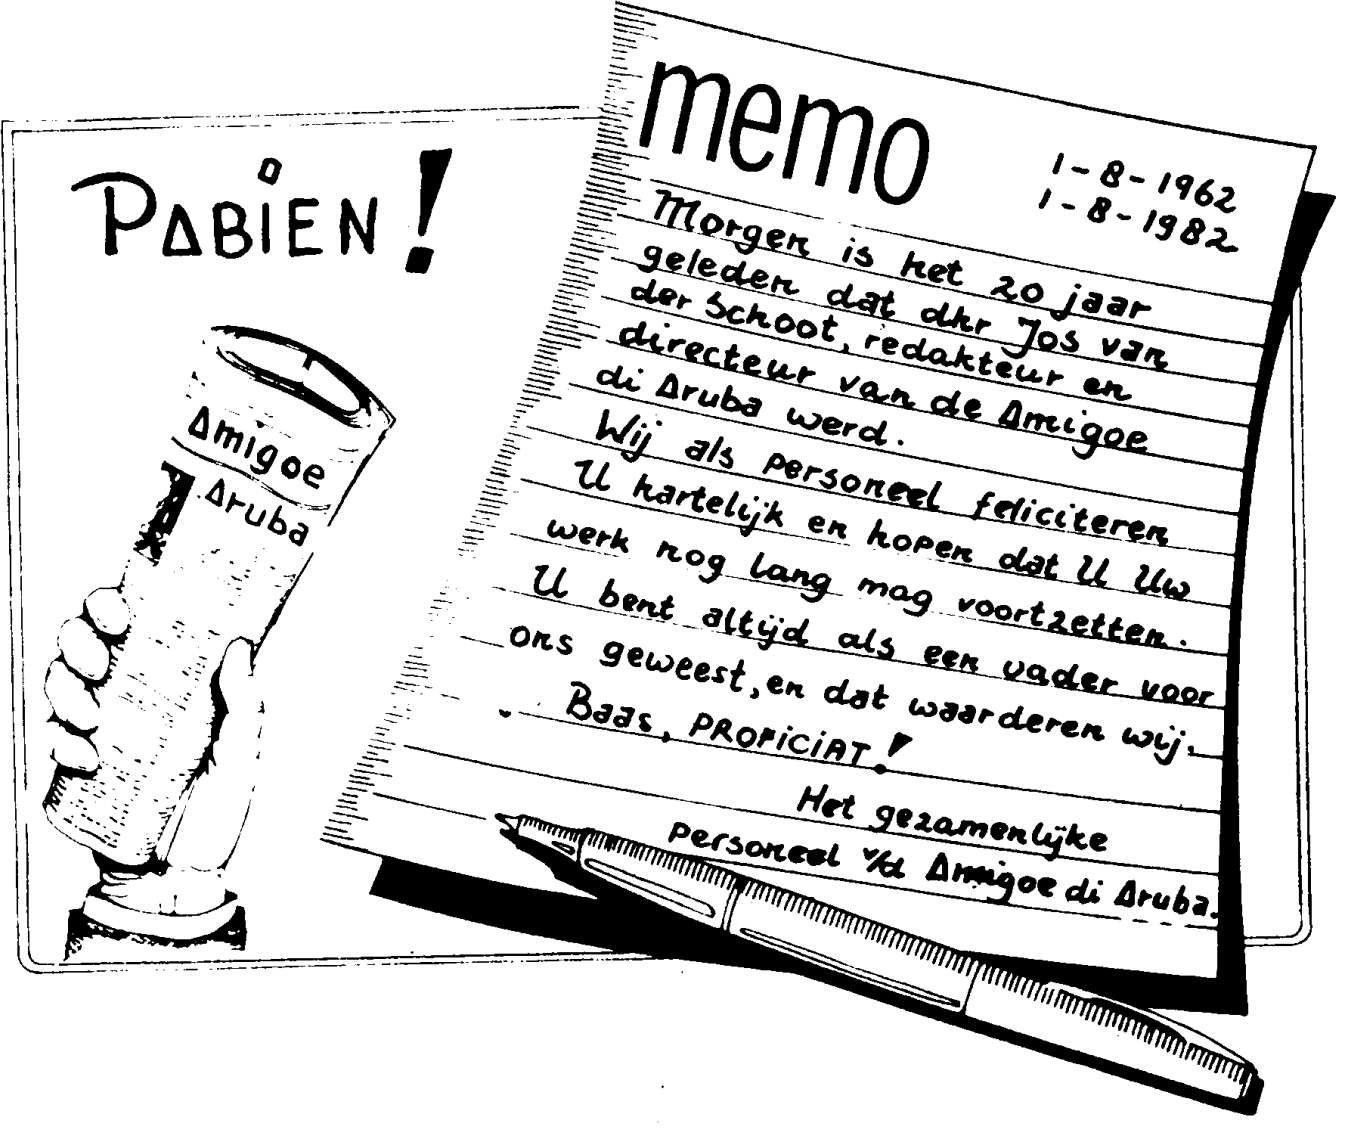 PABIEN!
Amigoe
Aruba
memo
1-8-1962
1-8-1982
Morgen is het 20 jaar
geleden dat dhr Jos van
der Schoot, redakteur en
directeur van de Amigoe
di Aruba werd.
Wij als personeel feliciteren
U hartelijk en hopen dat U Uw
werk nog lang mag voortzetten.
U bent altijd als een vader voor
ons geweest, en dat waarderen wij.
Baas, PROFICIAT!
Het gezamenlijke
personeel v/d Amigoe di Aruba.